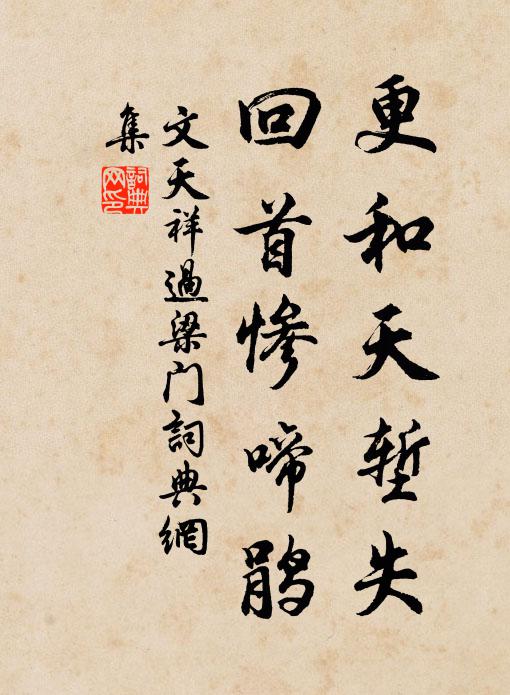 更和天堑失
回首惨啼鹃
文天祥過梁门詞典網
集
詞典
网印